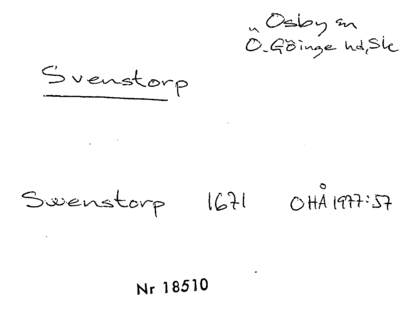 Osby sn
Ö. Göinge hd, Sk
Svenstorp
Swenstorp 1671 OHÅ 1977:57
Nr 18510